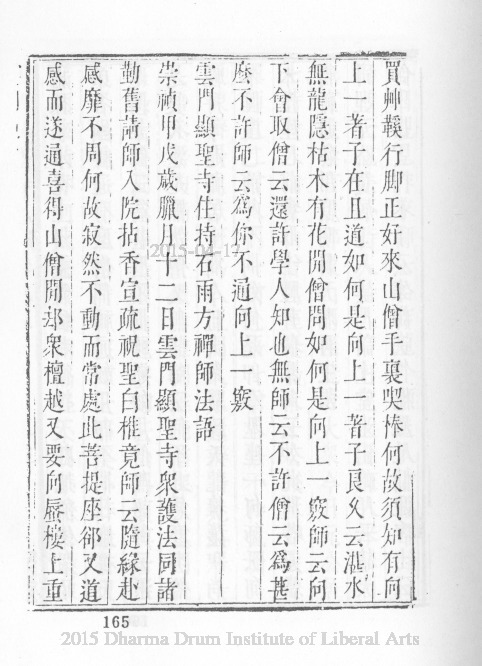 買艸鞵行脚正好來山僧手裏喫棒何故須知有向
上一著子在且道如何是向上一著子良久云湛水
無龍隱枯木有花開僧問如何是向上一竅師云向
下會取僧云還許學人知也無師云不許僧云爲甚
麽不許師云爲你不通向上一竅
雲門顯聖寺住持石雨方禪師法語
崇禎甲戌歲臘月十二日雲門顯聖寺衆護法同諸
勤舊請師入院拈香宣疏祝聖白椎竟師云隨緣赴
感靡不周何故寂然不動而常處此菩提座郤又道
感而遂通喜得山僧閒却衆檀越又要向蜃樓上重
165
2015-04-17
2015 Dharma Drum Institute of Liberal Arts